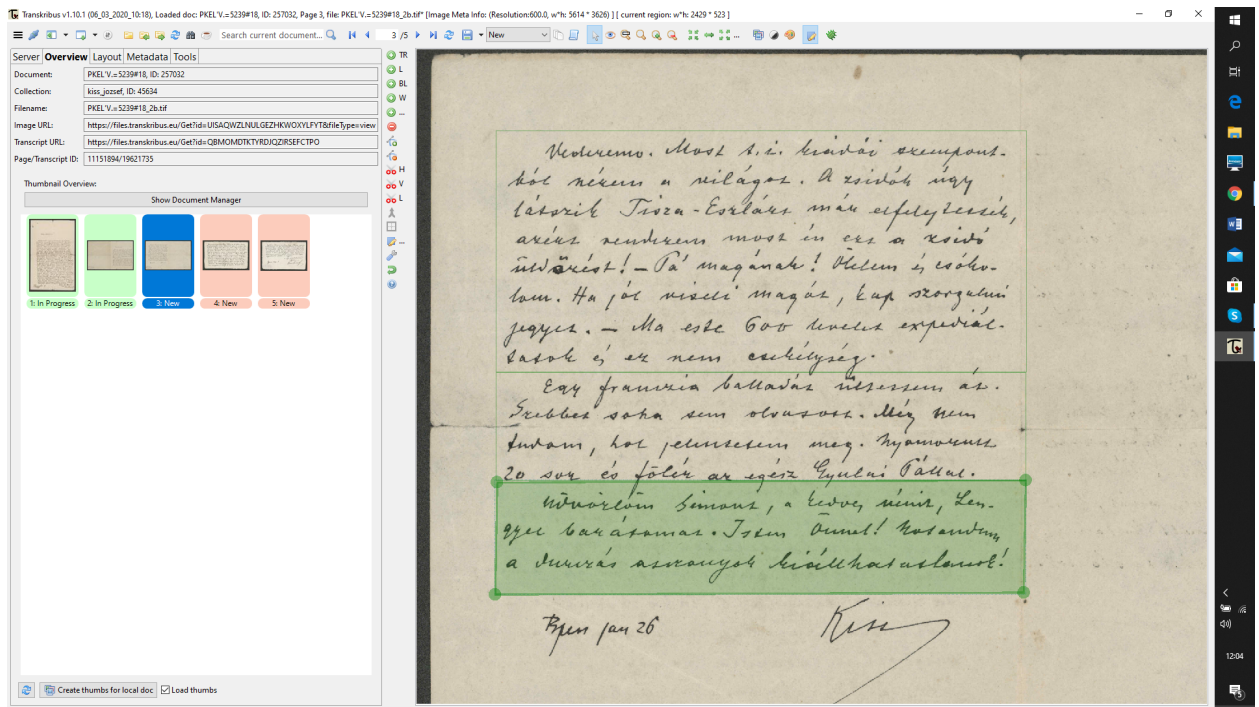 Transkribus v1.10.1 (06_03_2020_10:18), Loaded doc: PKEL'V.=5239#18, ID: 257032, Page 3, file: PKEL'V.=5239#18_2b.tif* [Image Meta Info: (Resolution:600.0, w*h: 5614 * 3626) ] [ current region: w*h: 2429 * 523 ]
Search current document...
3 /5
New
Server Overview Layout Metadata Tools
Document: PKEL'V.=5239#18, ID: 257032
Collection: kiss_jozsef, ID: 45634
Filename: PKEL'V.=5239#18_2b.tif
Image URL: https://files.transkribus.eu/Get?id=UISAQWZLNULGEZHKWOXYLFYT&fileType=view
Transcript URL: https://files.transkribus.eu/Get?id=QBMOMDTKTYRDJQZIRSEFCTPO
Page/Transcript ID: 11151894/19621735
Thumbnail Overview:
Show Document Manager
1: In Progress 2: In Progress 3: New 4: New 5: New
Create thumbs for local doc Load thumbs
TR
L
BL
W
...
H
V
L
...
Vederemo. Most t.i. kiadói szempont-
ból nézem a világot. A zsidók úgy
látszik Tisza-Eszlárt már elfelejtették,
azért rendezem most én ezt a zsidó
üldözést! – Pá magának! Ölelem és csóko-
lom. Ha jól viseli magát, kap szorgalmi
jegyet. – Ma este 600 levelet expediál-
tatok és ez nem csekélység.
Egy franczia balladát ültettem át.
Szebbet soha sem olvasott. Még nem
tudom, hol jelentetem meg. Nyomorult
20 sor és fölér az egész Gyulai Pállal.
Üdvözlöm Simont, a kedves nénit, Len-
gyel barátomat. Isten Önnel! Notandum
a durczás asszonyok kiállhatatlanok!
Bpest jan 26
Kiss
12:04